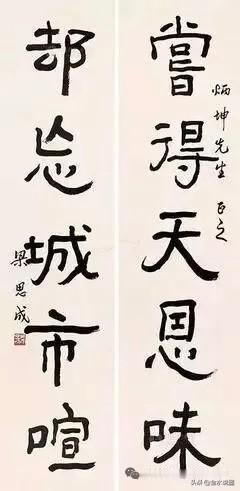 嘗得天恩味
炳坤先生正之
却忘城市喧
梁思成
头条